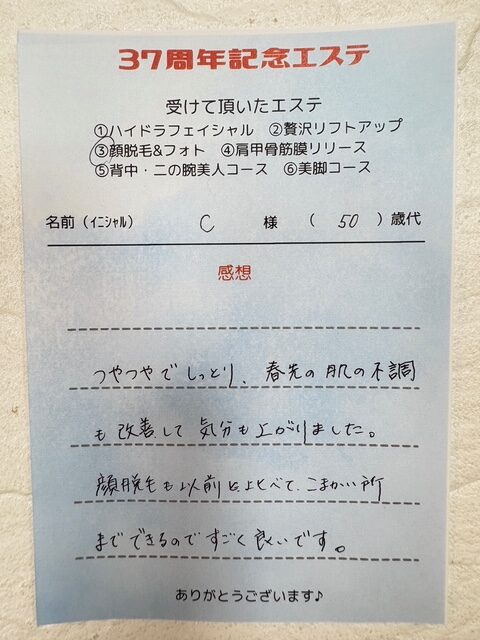 37周年記念エステ
受けて頂いたエステ
①ハイドラフェイシャル ②贅沢リフトアップ
③顔脱毛&フォト ④肩甲骨筋膜リリース
⑤背中・二の腕美人コース ⑥美脚コース
名前(イニシャル) C 様 (50)歳代
感想
つやつやでしっとり、春先の肌の不調
も改善して気分も上がりました。
顔脱毛も以前と比べて、こまかい所
までできるのですごく良いです。
ありがとうございます♪